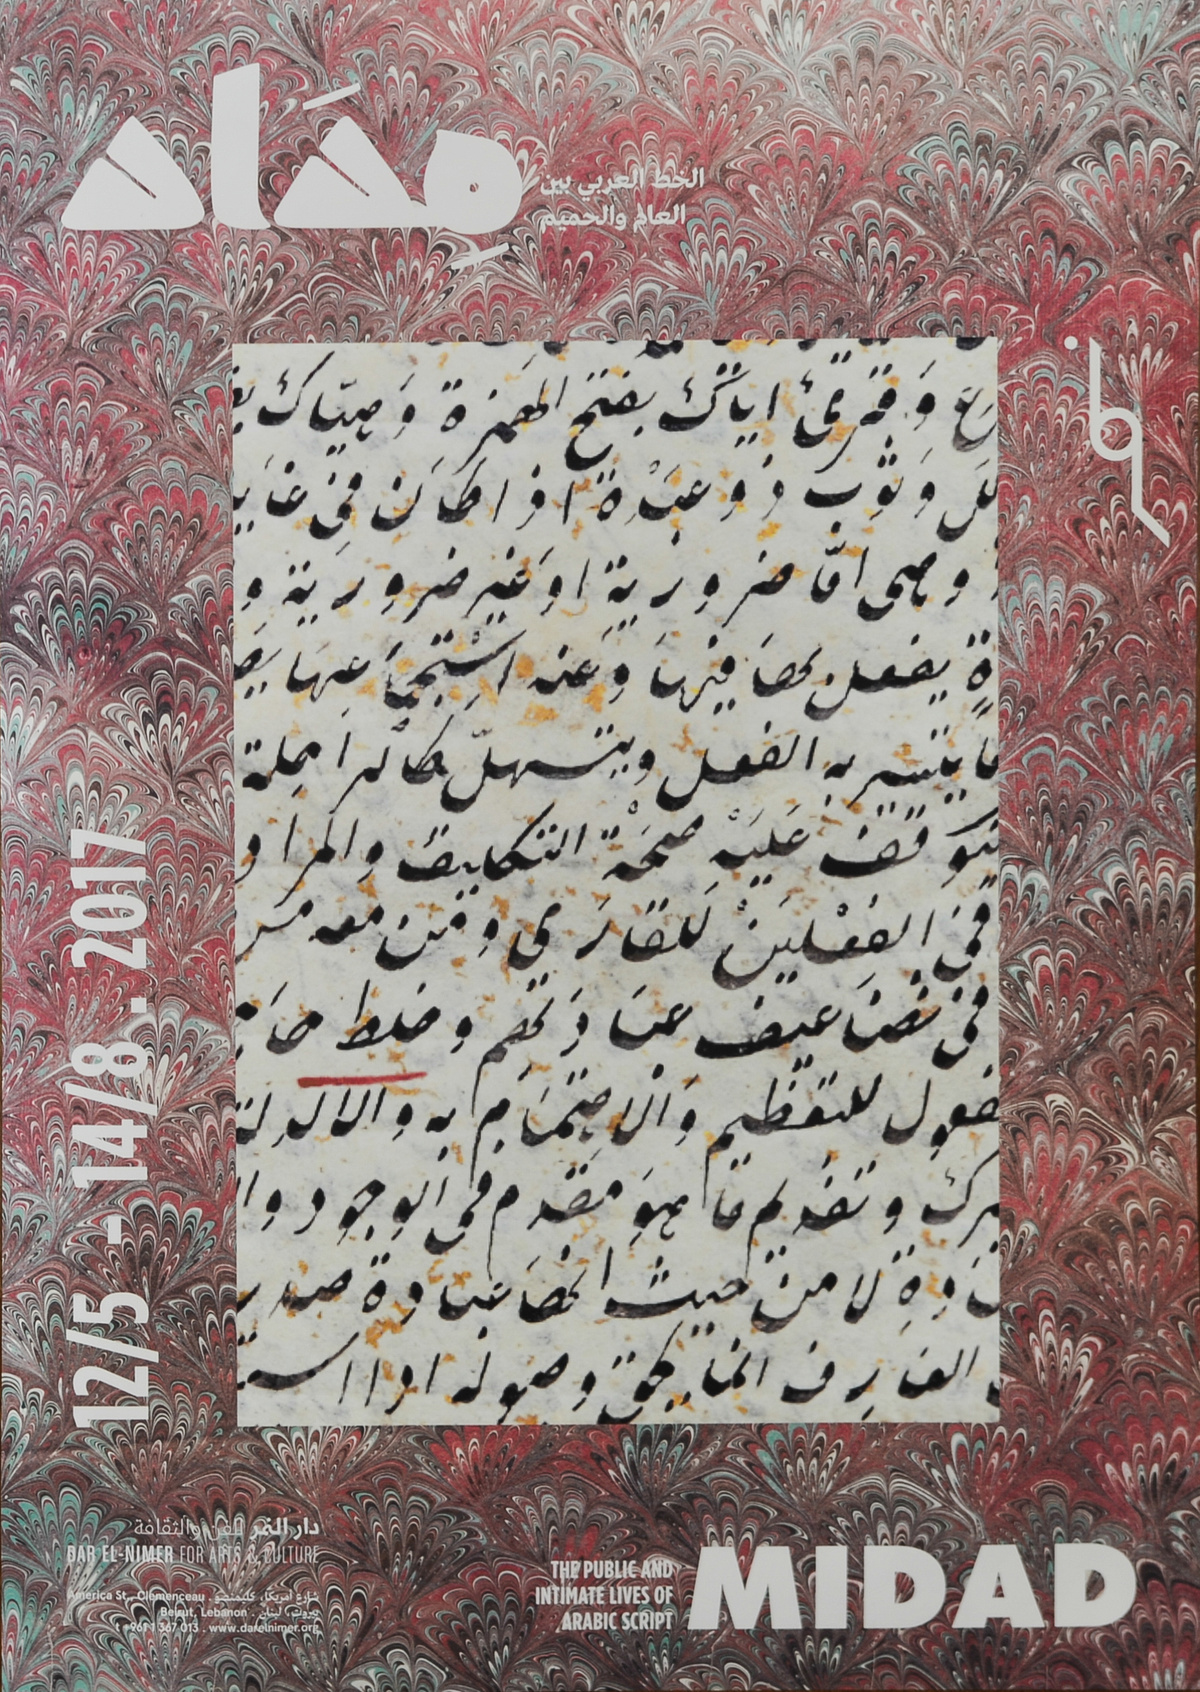 مِدَاد
الخط العربي بين
العالم والحميم
وَقرئ اياك بفتح الهمزة وَهيّاك
وَثوب ذو عبَدْة اذا كان في غايـ
وهى امّا ضرورية اوغير ضرورية و
ةٍ يفعل بها فيها وَعند استجماعها يصـ
ما يتيسر به الفعل ويتسهلّ كالراحلة
يتوقف عَليَه صحَّة التكليف والمراد
في الفعلين للقارى ومن معه
في تضاعيف عبادتهم وخلط حاجـ
للتعظيم وَالاهتمام به والدلالة
وتقديم ما هو مقدم في الوجود وا
لا من حيث انها عبادة صدر
العارف انما يحق وصوله اذا
12/5 - 14/8 . 2017
دار النمر للفن والثقافة
DAR EL-NIMER FOR ARTS & CULTURE
America St., Clemenceau . شارع أمريكا، كليمنصو
Beirut, Lebanon . بيروت، لبنان
t +961 1 367 013 . www.darelnimer.org
THE PUBLIC AND
INTIMATE LIVES OF
ARABIC SCRIPT
MIDAD